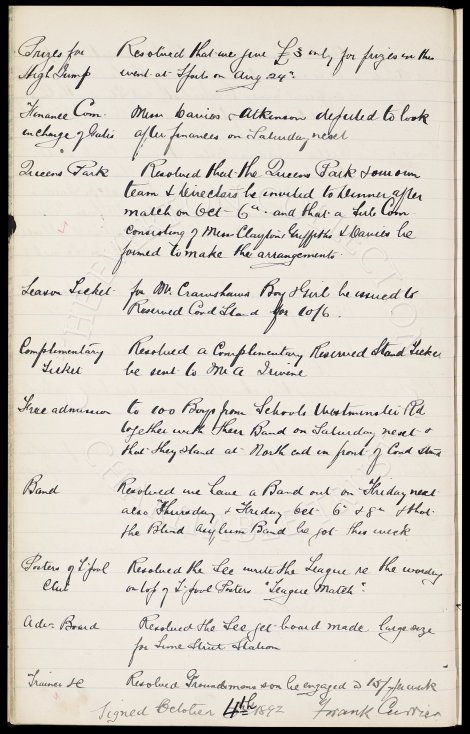 Prizes for High Jump
Resolved that we give £3 only for prizes in this
event at Sports on Aug 24th
Finance Com in charge of Gates
Messrs Davies & Atkinson deputed to look
after finances on Saturday next
Queens Park
Resolved that the Queens Park & our own
team & Directors be invited to Dinner after
match on Oct 6th and that a Sub Com
consisting of Messrs Clayton, Griffiths & Davies be
formed to make the arrangements.
Season Ticket
for Mr Crawshaws Boy & Girl be issued to
Reserved Cond Stand for 10/6.
Complimentary Ticket
Resolved a Complimentary Reserved Stand Ticket
be sent to Mr A Irvine
Free admission
to 100 Boys from Schools Westminster Rd
together with their Band on Saturday next &
that they stand at North end in front of Cond Stand
Band
Resolved we have a Band out on
also Thursday & Oct 6th & 8th & that
the Blind Asylum Band be got this week
Posters of L'pool Club
Resolved the Sec write the League re the wording
on top of L'pool Posters "League Match".
Adv. Board
Resolved the Sec get board made large size
for Lime Street Station
Trainer &c
Resolved Groundsmans son be engaged @ 15/- per week
Signed October 4th 1892 Frank Currier